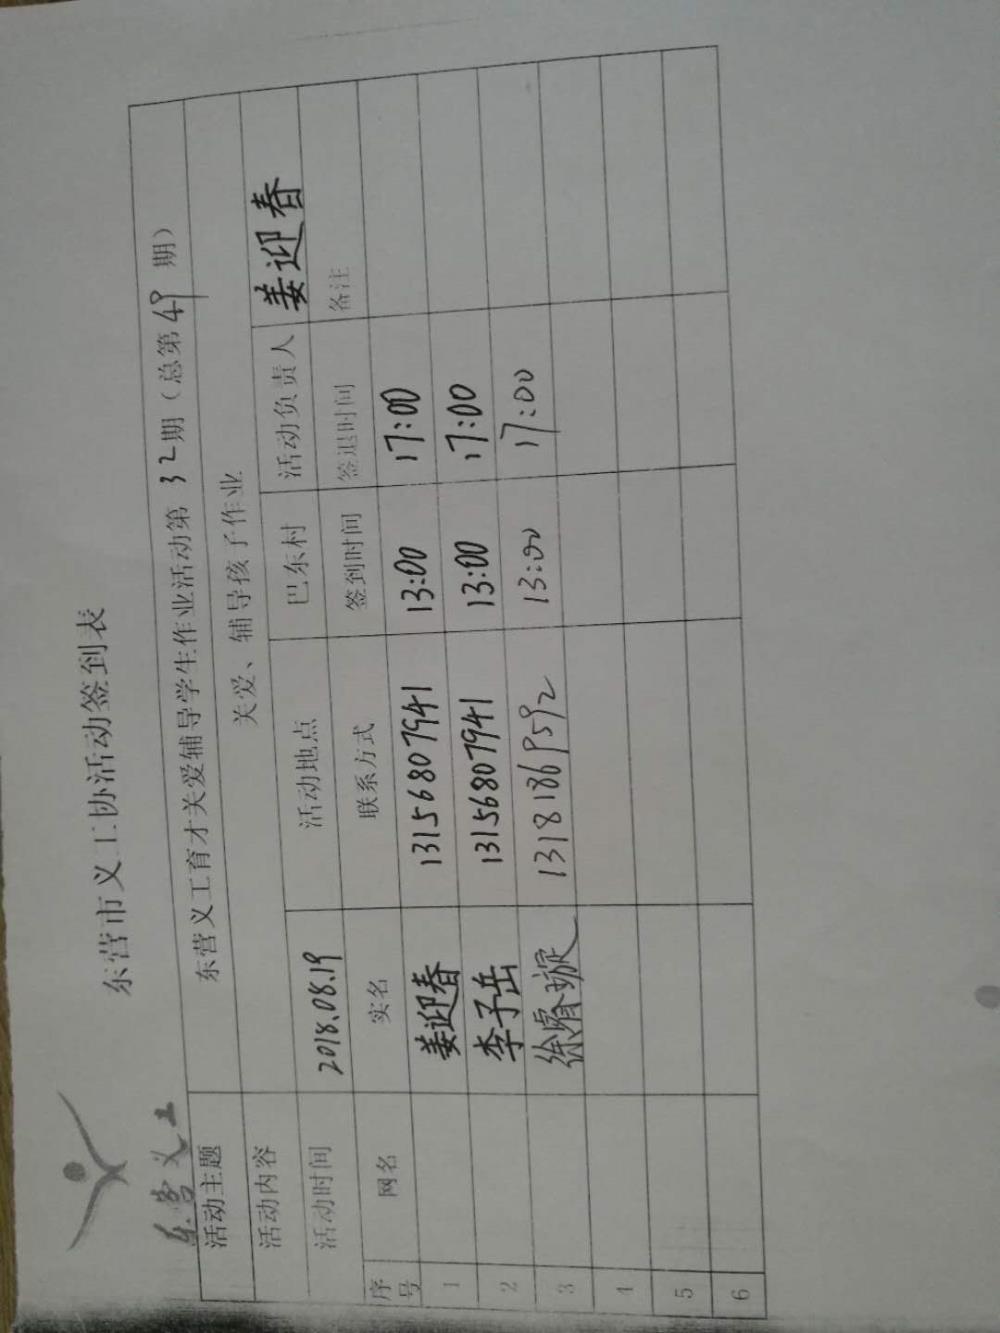 东营义工
东营市义工协活动签到表
活动主题 东营义工育才关爱辅导学生作业活动第32期（总第49期）
活动内容 关爱、辅导孩子作业
活动时间 2018.08.19 活动地点 巴东村 活动负责人 姜迎春
序号 网名 实名 联系方式 签到时间 签退时间 备注
1 姜迎春 13156807941 13:00 17:00
2 李子岳 13156807941 13:00 17:00
3 徐睿璇 13181869592 13:00 17:00
4
5
6